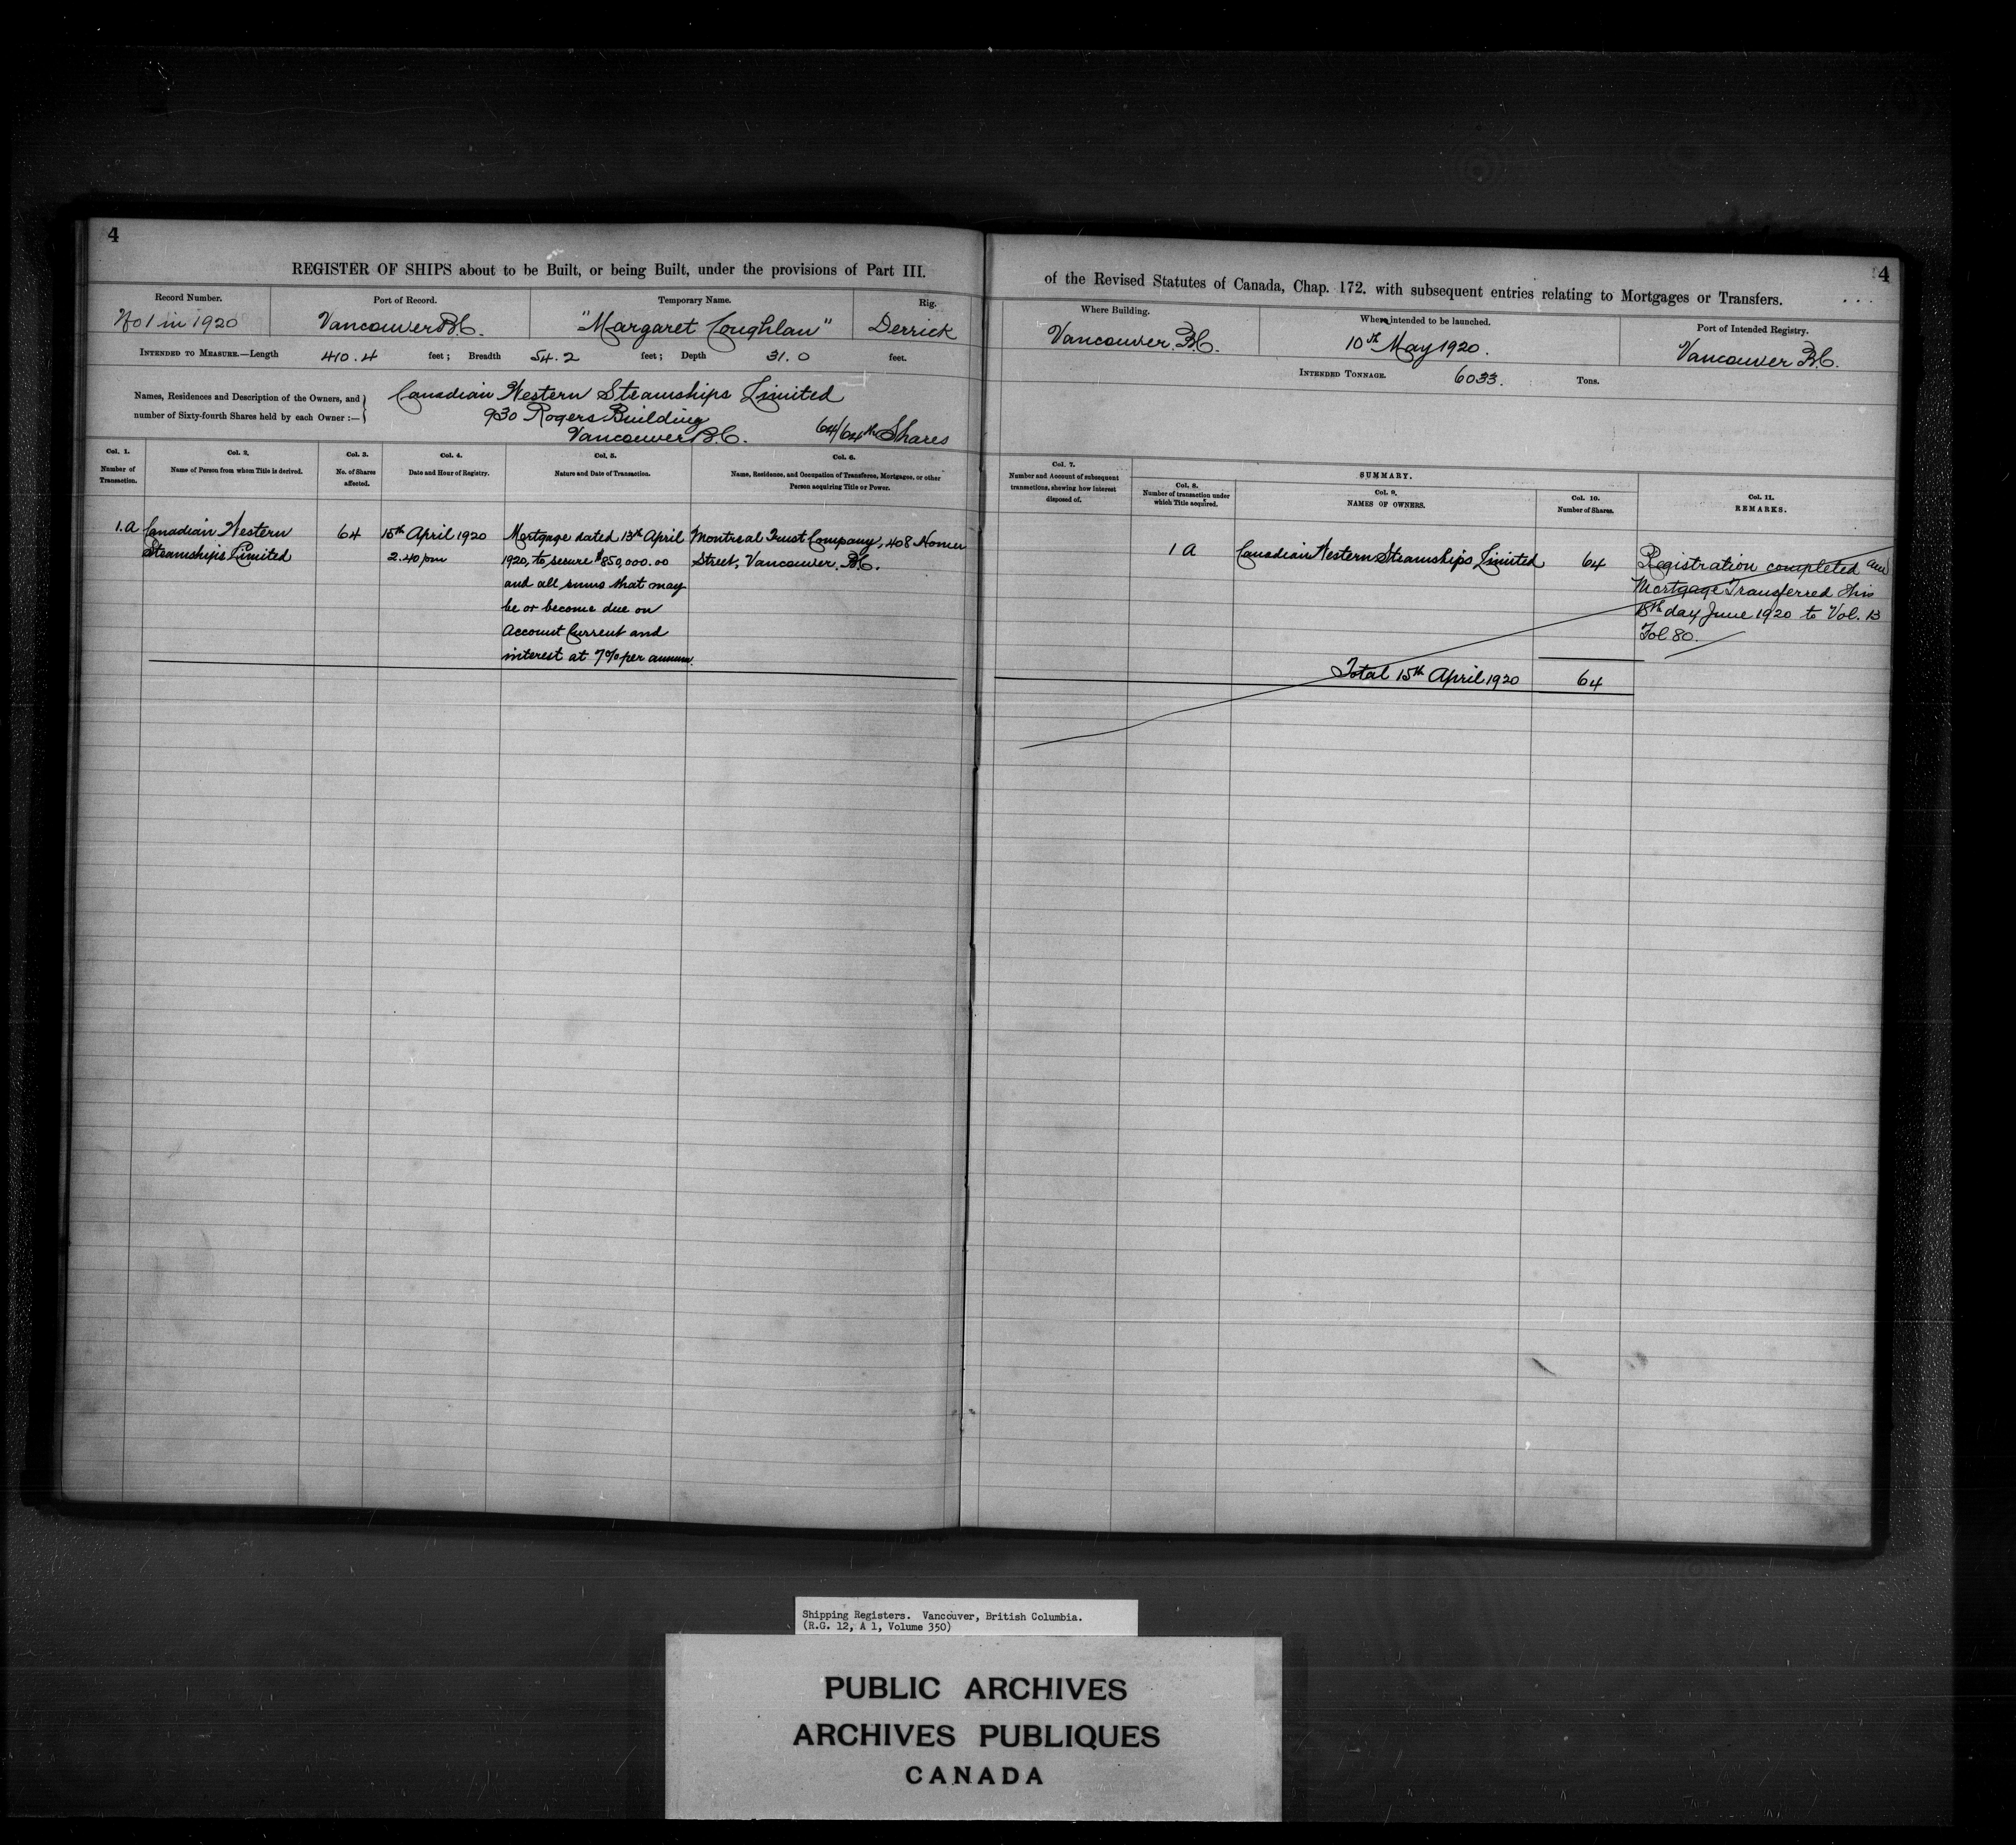 4
REGISTER OF SHIPS about to be Built, or being Built, under the provisions of Part III.
Record Number.
No 1 in 1920
Port of Record.
Vancouver B.C.
Temporary Name.
"Margaret Coughlan"
Rig.
Derrick
INTENDED TO MEASURE.—Length 410.4 feet; Breadth 54.2 feet; Depth 31.0 feet.
Names, Residences and Description of the Owners, and
number of Sixty-fourth Shares held by each Owner :—}
Canadian Western Steamships Limited
930 Rogers Building
Vancouver B.C. 64/64th Shares
Col. 1.
Number of
Transaction.
Col. 2.
Name of Person from whom Title is derived.
Col. 3.
No. of Shares
affected.
Col. 4.
Date and Hour of Registry.
Col. 5.
Nature and Date of Transaction.
Col. 6.
Name, Residence, and Occupation of Transferee, Mortgagee, or other
Person acquiring Title or Power.
1.A
Canadian Western
Steamships Limited
64
15th April 1920
2.40 pm
Mortgage dated 13th April
1920, to secure $850,000.00
and all sums that may
be or become due on
Account Current and
interest at 7% per annum.
Montreal Trust Company, 408 Homer
Street, Vancouver. B.C.
4
of the Revised Statutes of Canada, Chap. 172. with subsequent entries relating to Mortgages or Transfers.
Where Building.
Vancouver. B.C.
When intended to be launched.
10th May 1920.
Port of Intended Registry.
Vancouver B.C.
INTENDED TONNAGE. 6033. Tons.
Col. 7.
Number and Account of subsequent
transactions, shewing how interest
disposed of.
SUMMARY.
Col. 8.
Number of transaction under
which Title acquired.
Col. 9.
NAMES OF OWNERS.
Col. 10.
Number of Shares.
Col. 11.
REMARKS.
1 A
Canadian Western Steamships Limited
64
Registration completed and
Mortgage Transferred this
18th day June 1920 to Vol. 13
Fol. 80.
Total 15th April 1920 64
Shipping Registers. Vancouver, British Columbia.
(R.G. 12, A 1, Volume 350)
PUBLIC ARCHIVES
ARCHIVES PUBLIQUES
CANADA